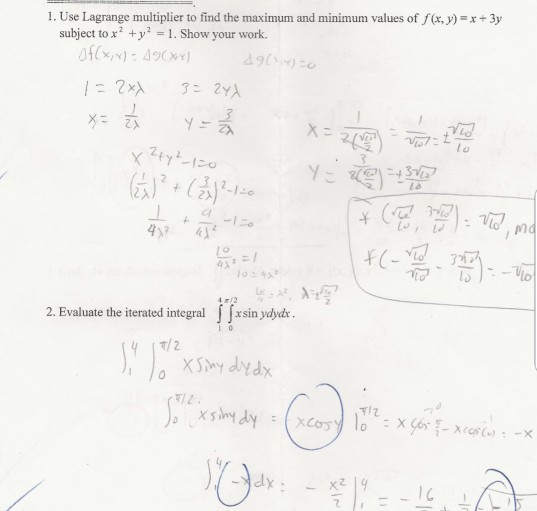 1. Use Lagrange multiplier to find the maximum and minimum values of f(x, y) = x + 3y
subject to x² + y² = 1. Show your work.
Δf(x,y) = Δg(x,y)   Δg(x,y)=0
1 = 2xλ   3 = 2yλ
x = 1/2λ   y = 3/2λ
x = 1/2(√10/2) = 1/√10 = ±√10/10
x²+y²-1=0
y = 3/2(√10/2) = ±3√10/10
(1/2λ)² + (3/2λ)²-1=0
* (√10/10, 3√10/10) = √10,
1/4λ² + 9/4λ² -1=0
*(-√10/√10 - 3√10/10) = -√10
10/4λ² = 1
10 = 4λ²
10/4 = λ², λ=±√10/2
2. Evaluate the iterated integral ∫₁⁴ ∫₀^π/2 x sin ydydx.
∫₁⁴ ∫₀^π/2 x siny dydx
∫₀^π/2 x siny dy = (xcosy) |₀^π/2 = x cos π/2 - x cos(0) = -x
∫₁⁴ (-x)dx = - x²/2 |₁⁴ = - 16/2 + 1/2